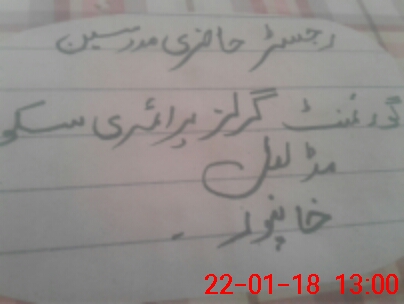 رجسٹر حاضری مدرسین
گورنمنٹ گرلز پرائمری سکو
مڈل
خانپور
22-01-18 13:00